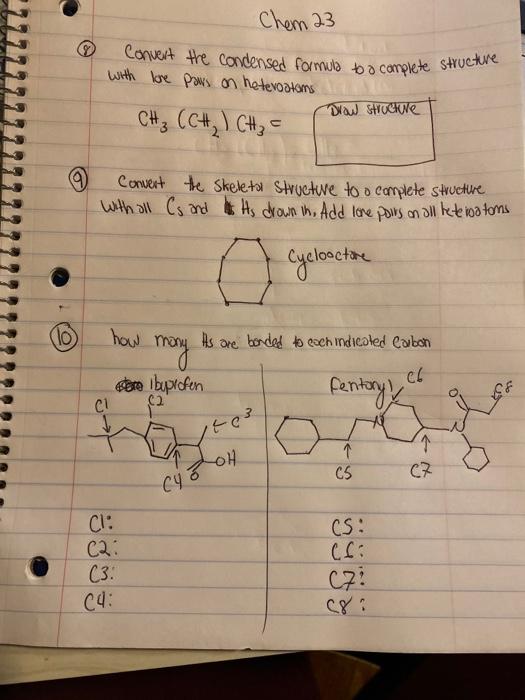 Chem 23
⑧ Convert the condensed formula to a complete structure
with lone pairs on heteroatoms
CH₃ (CH₂) CH₃ =
Draw structure
⑨ Convert the skeletal structure to a complete structure
with all Cs and Hs drown in. Add lone pairs on all heteroatoms
cyclooctane
⑩ how many Hs are bonded to each indicated Carbon
ibuprofen
C1
C2
C3
OH
O
C4
fentanyl
C6
C8
O
N
N
C5
C7
C1:
C2:
C3:
C4:
C5:
C6:
C7:
C8: